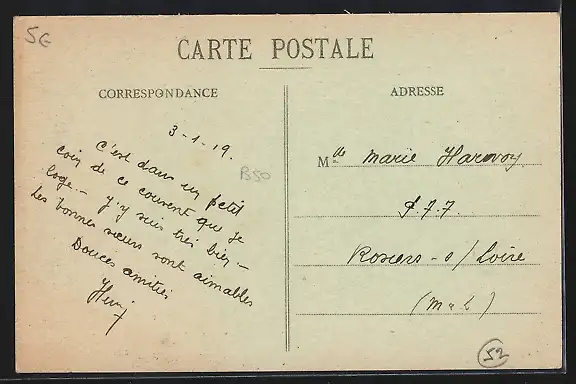 5€
CARTE POSTALE
CORRESPONDANCE
3-1-19.
C'est dans un petit
coin de ce couvent que je
loge.- J'y suis très bien.-
Les bonnes sœurs sont aimables
Douces amitiés
B50
ADRESSE
Mlle Marie
Rosiers-s/Loire
(M & L)
52